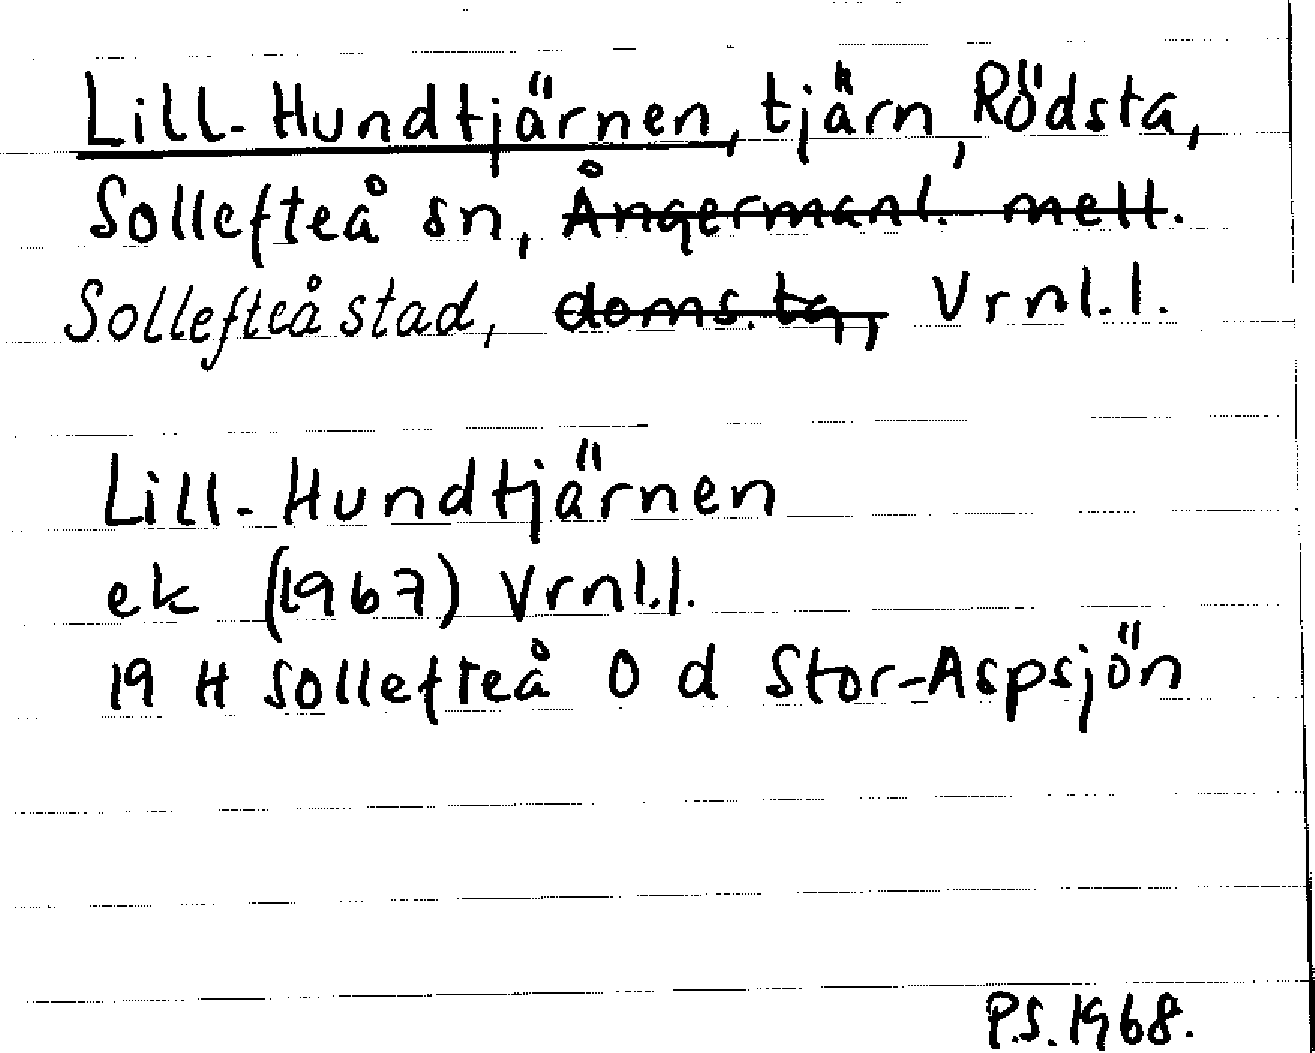 Lill-Hundtjärnen, tjärn, Rödsta,
Sollefteå sn, Ångermanl. mell.
Sollefteå stad, doms. tg, Vrnl.l.
Lill-Hundtjärnen
ek (1967) Vrnl.l.
19 H Sollefteå O d Stor-Aspsjön
P.S. 1968.